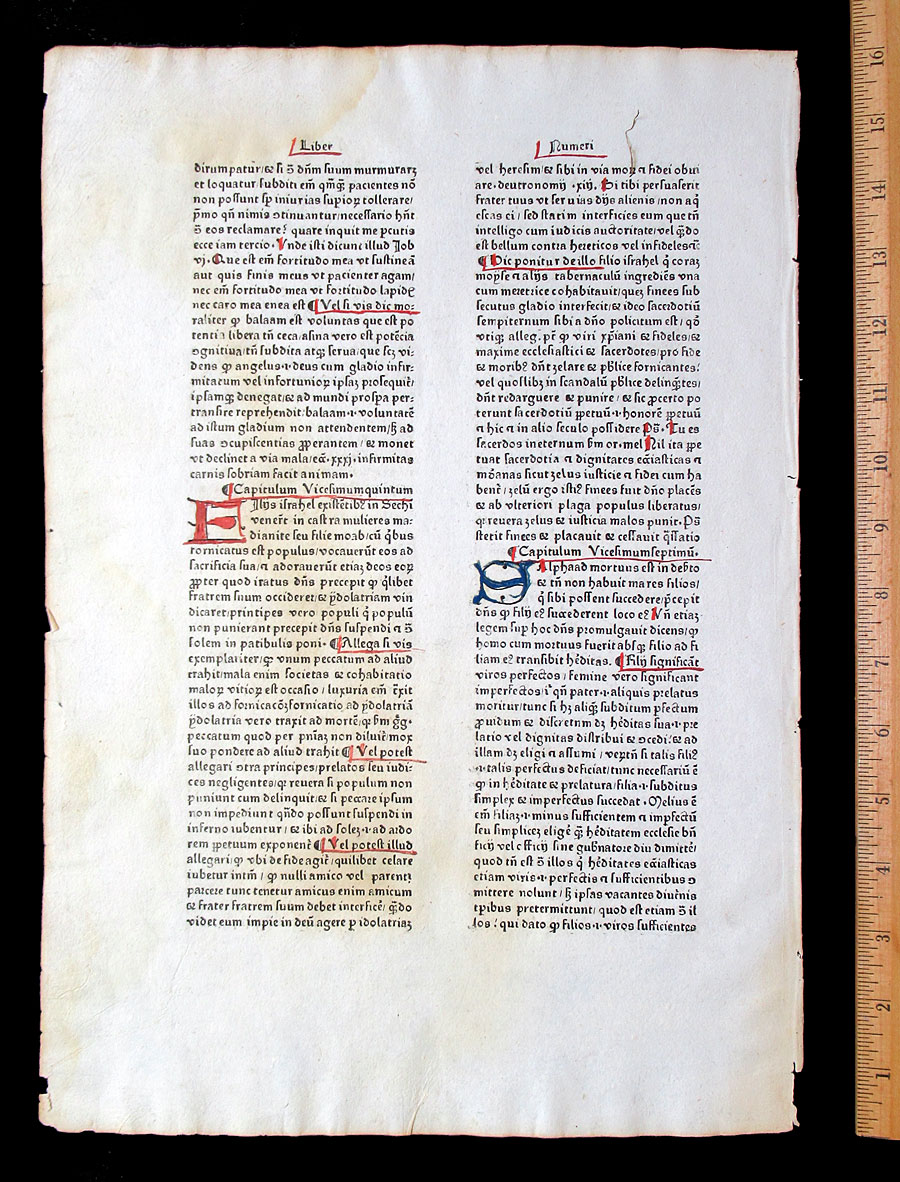 Liber
dirumpatur/⁊ si ↄ̄ dn̄m suum murmurarꝫ
et loquatur subditi em̄ qm̄qꝫ pacientes nō
non possunt sꝑ iniurias supioꝝ tollerare/
pͥmo qn̄ nimis ↄtinuantur/necessario hn̄t
ↄ̄ eos reclamare⸝ quare inquit me pcutis
ecce iam tercio. Vnde isti dicunt illud Job
vj. Que est em̄ fortitudo mea vt sustineā
aut quis finis meus vt pacienter agam/
nec em̄ fortitudo mea vt fortitudo lapidū
nec caro mea enea est ¶ Vel si vis dic mo:
raliter ꝙ balaam est voluntas que est po
tentia libera tn̄ ceca/asina vero est potēcia
ↄgnitiua/tn̄ subdita atqꝫ serua/que scꝫ vi:
dens ꝙ angelus.i.deus cum gladio infir:
mitatum vel infortunioꝝ ipsaꝫ prosequit̄/
ipsamqꝫ denegat/⁊ ad mundi prospa per:
transire reprehendit/balaam.i.voluntatē
ad istum gladium non attendentem/sꝫ ad
suas ↄcupiscentias ꝓperantem/ ⁊ monet
vt declinet a via mala/ecc̄. xxxj. infirmitas
carnis sobriam facit animam.
¶Capitulum Vicesimumquintum
FIlijs israhel existētibꝰ in Sethi
venerūt in castra mulieres ma:
dianite seu filie moab/cū q̄bus
fornicatus est populus/vocauerūt eos ad
sacrificia sua/⁊ adorauerūt etiaꝫ deos eoꝝ
ꝓpter quod iratus dn̄s precepit ꝙ q̄libet
fratrem suum occideret/⁊ ydolatriam vin
dicaret/printipes vero populi q̄ populū
non punierant precepit dn̄s suspendi ⁊ ↄ̄
solem in patibulis poni. ¶Allega si vis
exemplariter/ꝙ vnum peccatum ad aliud
trahit/mala enim societas ⁊ cohabitatio
maloꝝ vitioꝝ est occasio / luxuria em̄ t̄xit
illos ad fornicacōꝫ/fornicatio ad ydolatriā
ydolatria vero traxit ad mortē/ꝙ bm̄ g̊g.
peccatum quod per pn̄iaꝫ non diluit̄ mox
suo pondere ad aliud trahit ¶ Vel potest
allegari ↄtra principes/prelatos seu iudi:
ces negligentes/ꝙ reuera si populum non
puniunt cum delinquit/⁊ si peccare ipsum
non impediunt qn̄do possunt/suspendi in
inferno iubentur / ⁊ ibi ad solez.i.ad ardo
rem ꝑpetuum exponent̄ ¶ Vel potest illud
allegari/ꝙ vbi de fide agit̄/quilibet celare
iubetur intm̄ / ꝙ nulli amico vel parenti
parcere tunc tenetur amicus enim amicum
⁊ frater fratrem suum debet interficet̄/ qn̄do
videt eum impie in deū agere ꝑ idolatriaꝫ
Numeri
vel heresim/⁊ sibi in via moꝝ ⁊ fidei obui
are.deutronomij .xiij. Si tibi persuaserit
frater tuus vt seruias dijs alienis/non aq̄
escas ei / sed statim interficies eum que tn̄
intelligo cum iudicis auctoritate/vel qn̄do
est bellum contra hereticos vel infideles ⁊c̄
¶ Dic ponitur de illo filio israhel q̄ coraꝫ
moyse ⁊ alijs tabernaculū ingrediēs vna
cum meretrice cohabitauit/queꝫ finees sub
secutus gladio interfecit/⁊ ideo sacerdotiū
sempiternum sibi a dn̄o policitum est / qō
vtiqꝫ alleg. pt̄ ꝙ viri xp̄iani ⁊ fideles/⁊
maxime ecclesiastici ⁊ sacerdotes/pro fide
⁊ moribꝰ dn̄t zelare/⁊ pb̄lice fornicantes/
vel quoslibꝫ in scandalū pb̄lice delinq̄ntes/
dn̄t redarguere ⁊ punire / ⁊ sic ꝓcerto po
terunt sacerdotiū ꝑpetuū.i.honorē ꝑpetuū
⁊ hic ⁊ in alio seculo possidere pō. Tu es
sacerdos ineternum bm̄ or.mel Nil ita ꝑpe
tuat sacerdotia ⁊ dignitates ecc̄iasticas ⁊
mōanas sicut zelus iusticie ⁊ fidei cum ha
bent̄ / zelū ergo istiꝰ finees fuit dn̄o placēs
⁊ ab vlteriori plaga populus liberatus/
qꝛ reuera zelus ⁊ iusticia malos punit. pō
stetit finees ⁊ placauit ⁊ cessauit q̄ssatio
¶ Capitulum Vicesimumseptimū.
SAlphaad mortuus est in deserto
⁊ tn̄ non habuit mares filios/
q̄ sibi possent succedere/p̄cepit
dn̄s ꝙ filij eꝰ succederent loco eꝰ Vn̄ etiaꝫ
legem sup hoc dn̄s promulgauit dicens/ꝙ
homo cum mortuus fuerit absqꝫ filio ad fi
liam eꝰ transibit hēditas. ¶Filij significāt
viros perfectos / femine vero significant
imperfectos/iᵒ qn̄ pater.i.aliquis prelatus
moritur/tunc si hꝫ aliqꝫ subditum pfectum
ꝓuidum ⁊ discretum dꝫ hēditas sua.i.pre
latio vel dignitas distribui ⁊ ↄcedi/⁊ ad
illam dꝫ eligi ⁊ assumi / vertn̄ si talis filiꝰ
.i.talis perfectus deficiat/tunc necessariū ē
ꝙ in hēditate ⁊ prelatura/filia.i.subditus
simplex ⁊ imperfectus succedat. Melius ē
em̄ filiaꝫ.i.minus sufficientem ⁊ impfectū
seu simplicez eligē ꝙ hēditatem ecclesie bn̄
ficij vel officij sine gubn̄atore diu dimittē/
quod tn̄ est ↄ̄ illos q̄ hēditates ecc̄iasticas
etiam viris.i.perfectis ⁊ sufficientibus ↄ
mittere nolunt / sꝫ ipsas vacantes diut̄nis
tꝑibus pretermittunt/ quod est etiam ↄ̄ il
los/ qui dato ꝙ filios.i.viros sufficientes